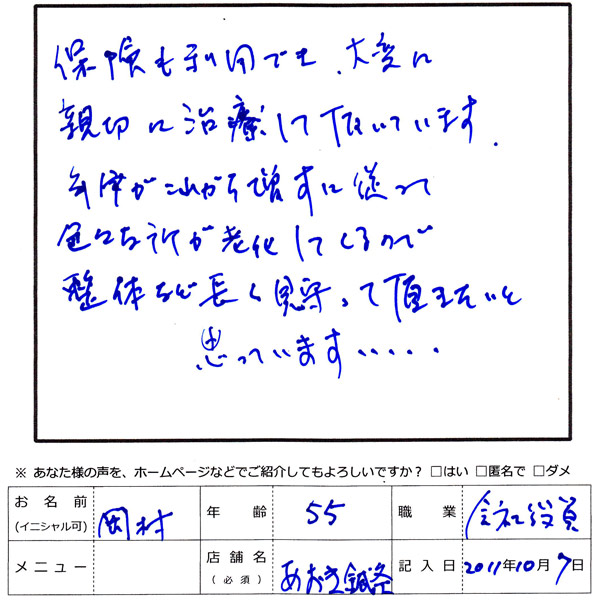 保険も利用でき、大変に
親切に治療して頂いています.
年津がこれから増すに従って
色々な所が老化してくるので
整体など長く見守って頂きたいと
思っています.....
※ あなた様の声を、ホームページなどでご紹介してもよろしいですか? □はい □匿名で □ダメ
お名前 (イニシャル可) 岡村 年齢 55 職業 会社役員
メニュー 店舗名 (必須) あおき鍼灸 記入日 2011年10月7日